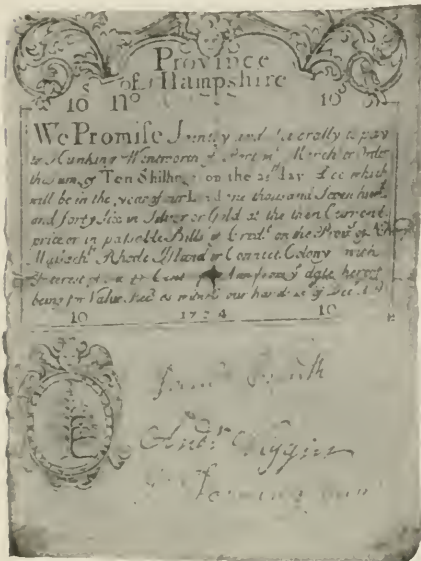 Province
of Hampshire
10 s No 10 s
We Promise Jointly and Severally to pay
to Hunking Wentworth of Portsmo Merch or Order
the sum of Ten Shillings on the 25th day Dec which
will be in the year of our Lord one thousand Seven hund
and forty Six in Silver or Gold at the then Current
price or in passable Bills of Cred on the Prov of
Massach Rhode Island or Connect Colony with
Interest Cent from date hereof
being for Value Rec as witness our hands Dec
10 1734 10
Smith
Andr Wiggin